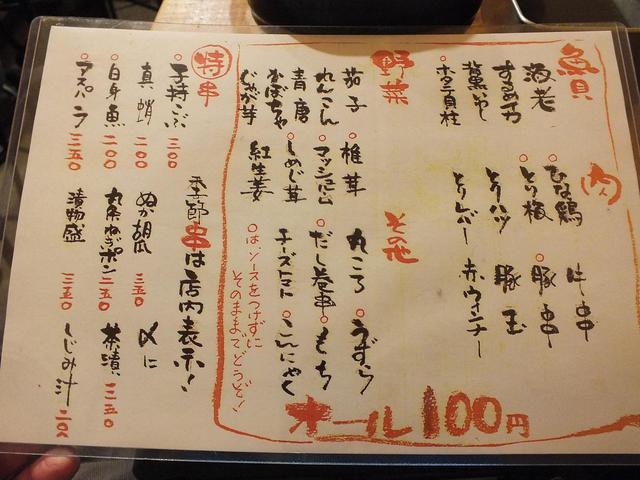 魚貝
海老
するめイカ
背黒いわし
○ホタテ貝柱
肉
○ひな鶏
○とり梅
とりハツ
とりレバー
牛串
○豚串
豚玉
赤ウインナー
野菜
茄子
れんこん
青唐
かぼちゃ
じゃが芋
椎茸
○マッシュルーム
○しめじ茸
紅生姜
その他
丸ころ
○だし巻串
チーズトマト
○うずら
○もち
○こんにゃく
○は、ソースをつけずに
そのままでどうぞ!
オール100円
特串
○子持こぶ 三〇〇
真蛸 二〇〇
○白身魚 二〇〇
○アスパラ 三五〇
季節串は店内表示!
ぬか胡瓜 三五〇
丸天ねぎポン 三五〇
漬物盛 三五〇
〆に
茶漬 三五〇
しじみ汁 二〇〇